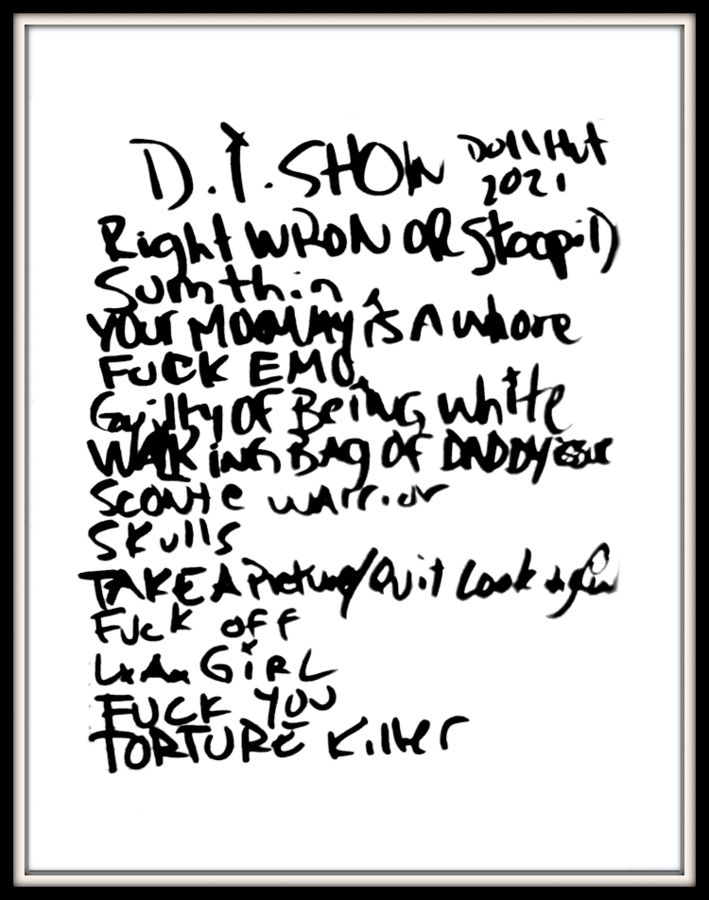 D.I. SHOW Doll Hut
2021
Right WRON OR StoopiD
Sumthin
YOUR MOMMY is A Whore
FUCK EMO
Guilty OF BEiNG White
WALKiNG BAG OF DADDY
SCONTE WARRiOR
SKulls
TAKE A Picture/Quit Look
FUCK OFF
LxAx GiRL
FUCK YOU
TORTURE Killer